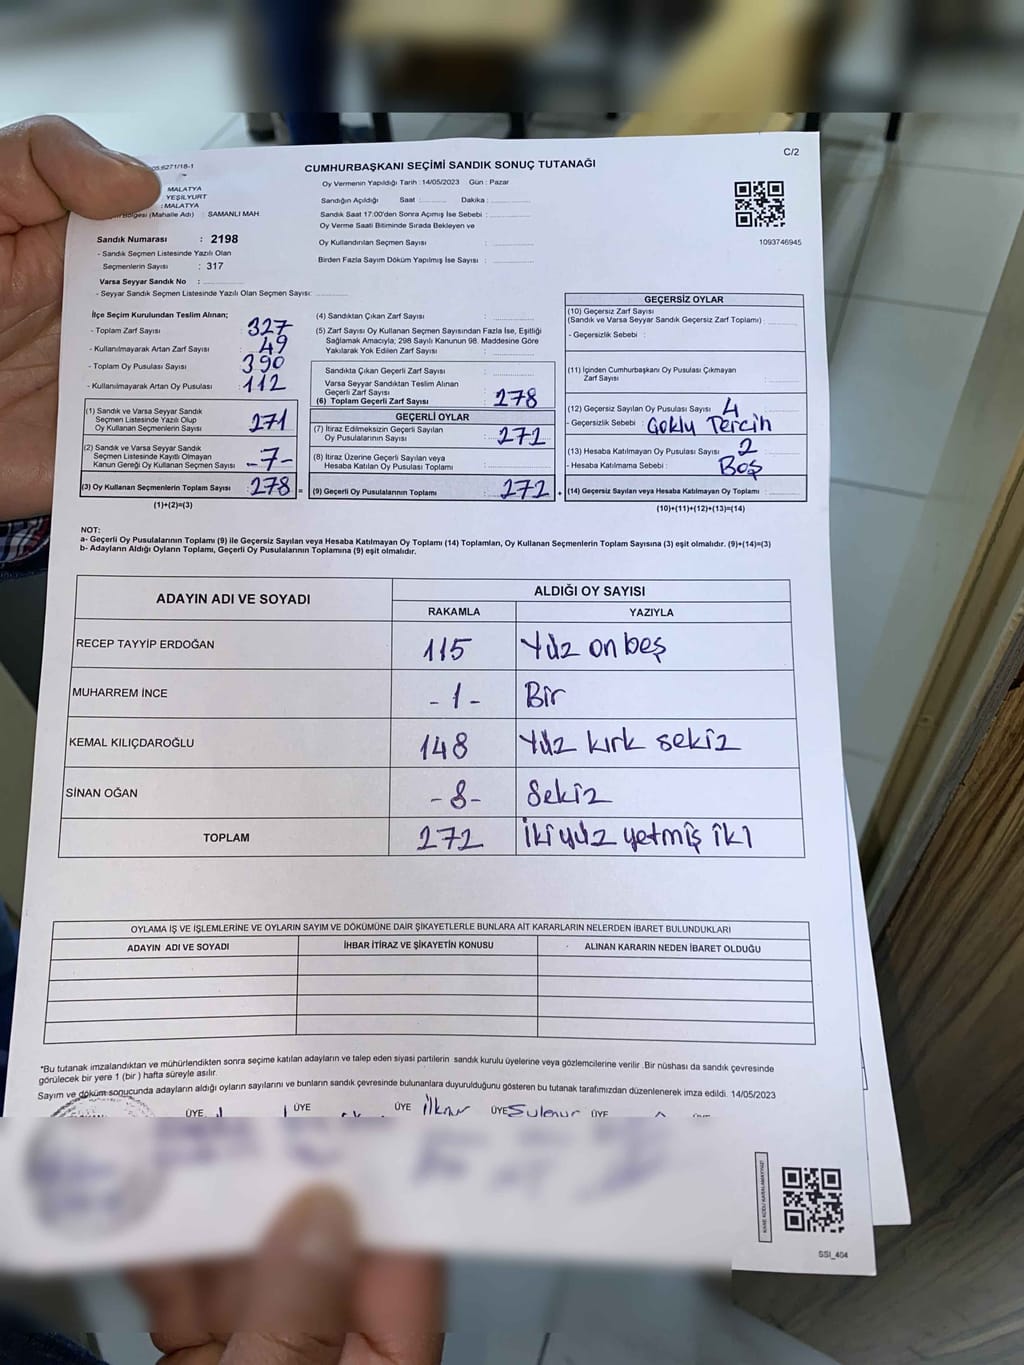 6271/18-1
CUMHURBAŞKANI SEÇİMİ SANDIK SONUÇ TUTANAĞI
C/2
MALATYA
YEŞİLYURT
: MALATYA
Bölgesi (Mahalle Adı) : SAMANLI MAH
Sandık Numarası : 2198
- Sandık Seçmen Listesinde Yazılı Olan
Seçmenlerin Sayısı : 317
Varsa Seyyar Sandık No :
- Seyyar Sandık Seçmen Listesinde Yazılı Olan Seçmen Sayısı:
Oy Vermenin Yapıldığı Tarih : 14/05/2023 Gün : Pazar
Sandığın Açıldığı Saat : Dakika :
Sandık Saat 17:00'den Sonra Açımış İse Sebebi :
Oy Verme Saati Bitiminde Sırada Bekleyen ve
Oy Kullandırılan Seçmen Sayısı :
Birden Fazla Sayım Döküm Yapılmış İse Sayısı :
1093746945
İlçe Seçim Kurulundan Teslim Alınan;
- Toplam Zarf Sayısı : 327
- Kullanılmayarak Artan Zarf Sayısı : 49
- Toplam Oy Pusulası Sayısı : 390
- Kullanılmayarak Artan Oy Pusulası : 112
(1) Sandık ve Varsa Seyyar Sandık
Seçmen Listesinde Yazılı Olup
Oy Kullanan Seçmenlerin Sayısı : 271
(2) Sandık ve Varsa Seyyar Sandık
Seçmen Listesinde Kayıtlı Olmayan
Kanun Gereği Oy Kullanan Seçmen Sayısı : -7-
(3) Oy Kullanan Seçmenlerin Toplam Sayısı : 278 =
(1)+(2)=(3)
(4) Sandıktan Çıkan Zarf Sayısı :
(5) Zarf Sayısı Oy Kullanan Seçmen Sayısından Fazla İse, Eşitliği
Sağlamak Amacıyla; 298 Sayılı Kanunun 98. Maddesine Göre
Yakılarak Yok Edilen Zarf Sayısı :
Sandıkta Çıkan Geçerli Zarf Sayısı :
Varsa Seyyar Sandıktan Teslim Alınan
Geçerli Zarf Sayısı :
(6) Toplam Geçerli Zarf Sayısı : 278
GEÇERLİ OYLAR
(7) İtiraz Edilmeksizin Geçerli Sayılan
Oy Pusulalarının Sayısı : 272
(8) İtiraz Üzerine Geçerli Sayılan veya
Hesaba Katılan Oy Pusulası Toplamı :
(9) Geçerli Oy Pusulalarının Toplamı : 272 +
GEÇERSİZ OYLAR
(10) Geçersiz Zarf Sayısı
(Sandık ve Varsa Seyyar Sandık Geçersiz Zarf Toplamı) :
- Geçersizlik Sebebi :
(11) İçinden Cumhurbaşkanı Oy Pusulası Çıkmayan
Zarf Sayısı :
(12) Geçersiz Sayılan Oy Pusulası Sayısı : 4
- Geçersizlik Sebebi : Çoklu Tercih
(13) Hesaba Katılmayan Oy Pusulası Sayısı : 2
- Hesaba Katılmama Sebebi : Boş
(14) Geçersiz Sayılan veya Hesaba Katılmayan Oy Toplamı :
(10)+(11)+(12)+(13)=(14)
NOT:
a- Geçerli Oy Pusulalarının Toplamı (9) ile Geçersiz Sayılan veya Hesaba Katılmayan Oy Toplamı (14) Toplamları, Oy Kullanan Seçmenlerin Toplam Sayısına (3) eşit olmalıdır. (9)+(14)=(3)
b- Adayların Aldığı Oyların Toplamı, Geçerli Oy Pusulalarının Toplamına (9) eşit olmalıdır.
ADAYIN ADI VE SOYADI
ALDIĞI OY SAYISI
RAKAMLA YAZIYLA
RECEP TAYYİP ERDOĞAN 115 Yüz on beş
MUHARREM İNCE -1- Bir
KEMAL KILIÇDAROĞLU 148 Yüz kırk sekiz
SİNAN OĞAN -8- Sekiz
TOPLAM 272 İki yüz yetmiş iki
OYLAMA İŞ VE İŞLEMLERİNE VE OYLARIN SAYIM VE DÖKÜMÜNE DAİR ŞİKAYETLERLE BUNLARA AİT KARARLARIN NELERDEN İBARET BULUNDUKLARI
ADAYIN ADI VE SOYADI İHBAR İTİRAZ VE ŞİKAYETİN KONUSU ALINAN KARARIN NEDEN İBARET OLDUĞU
"Bu tutanak imzalandıktan ve mühürlendikten sonra seçime katılan adayların ve talep eden siyasi partilerin sandık kurulu üyelerine veya gözlemcilerine verilir .Bir nüshası da sandık çevresinde
görülecek bir yere 1 (bir ) hafta süreyle asılır.
Sayım ve döküm sonucunda adayların aldığı oyların sayılarını ve bunların sandık çevresinde bulunanlara duyurulduğunu gösteren bu tutanak tarafımızdan düzenlenerek imza edildi. 14/05/2023
ÜYE ÜYE ÜYE İlknur ÜYE Sulenur ÜYE ÜYE
KARE KODU KARALAMAYINIZ!
SSI_404